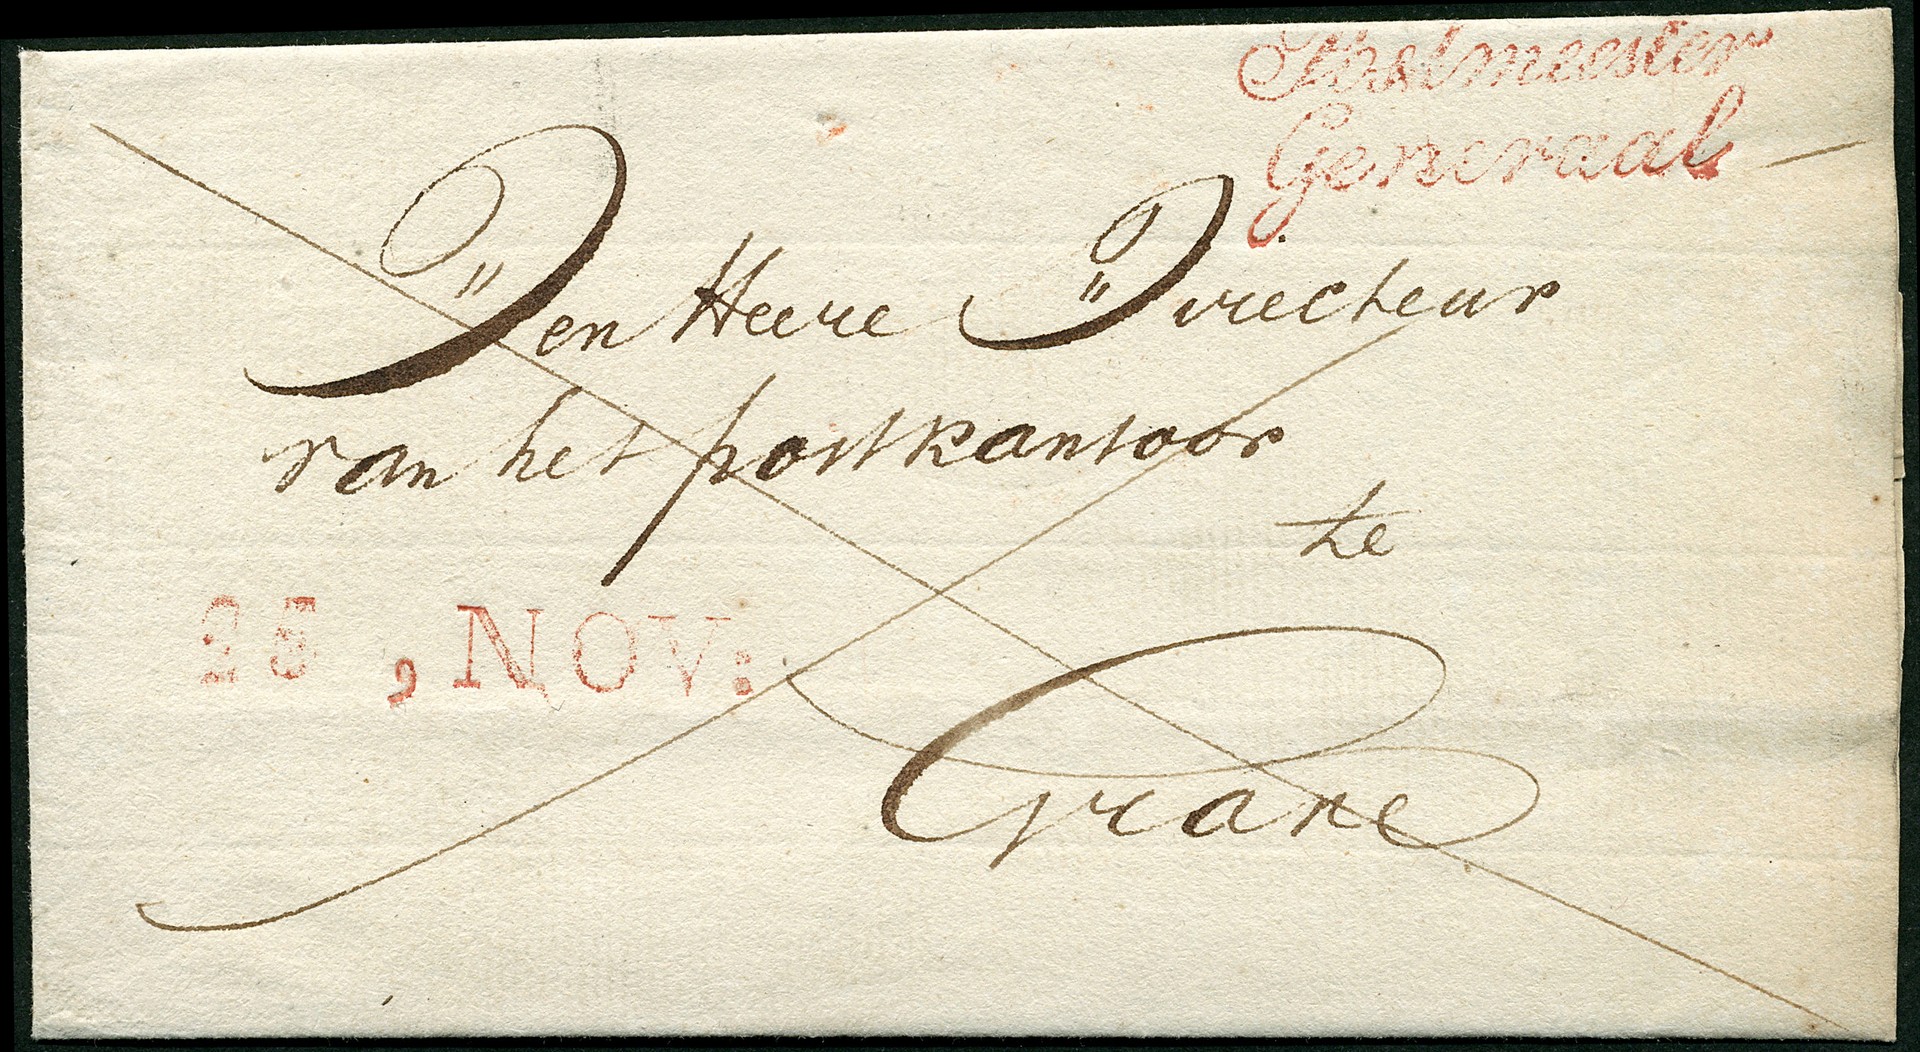 Postmeester
Generaal
Den Heere Directeur
van het postkantoor
te
Grave
25, NOV: